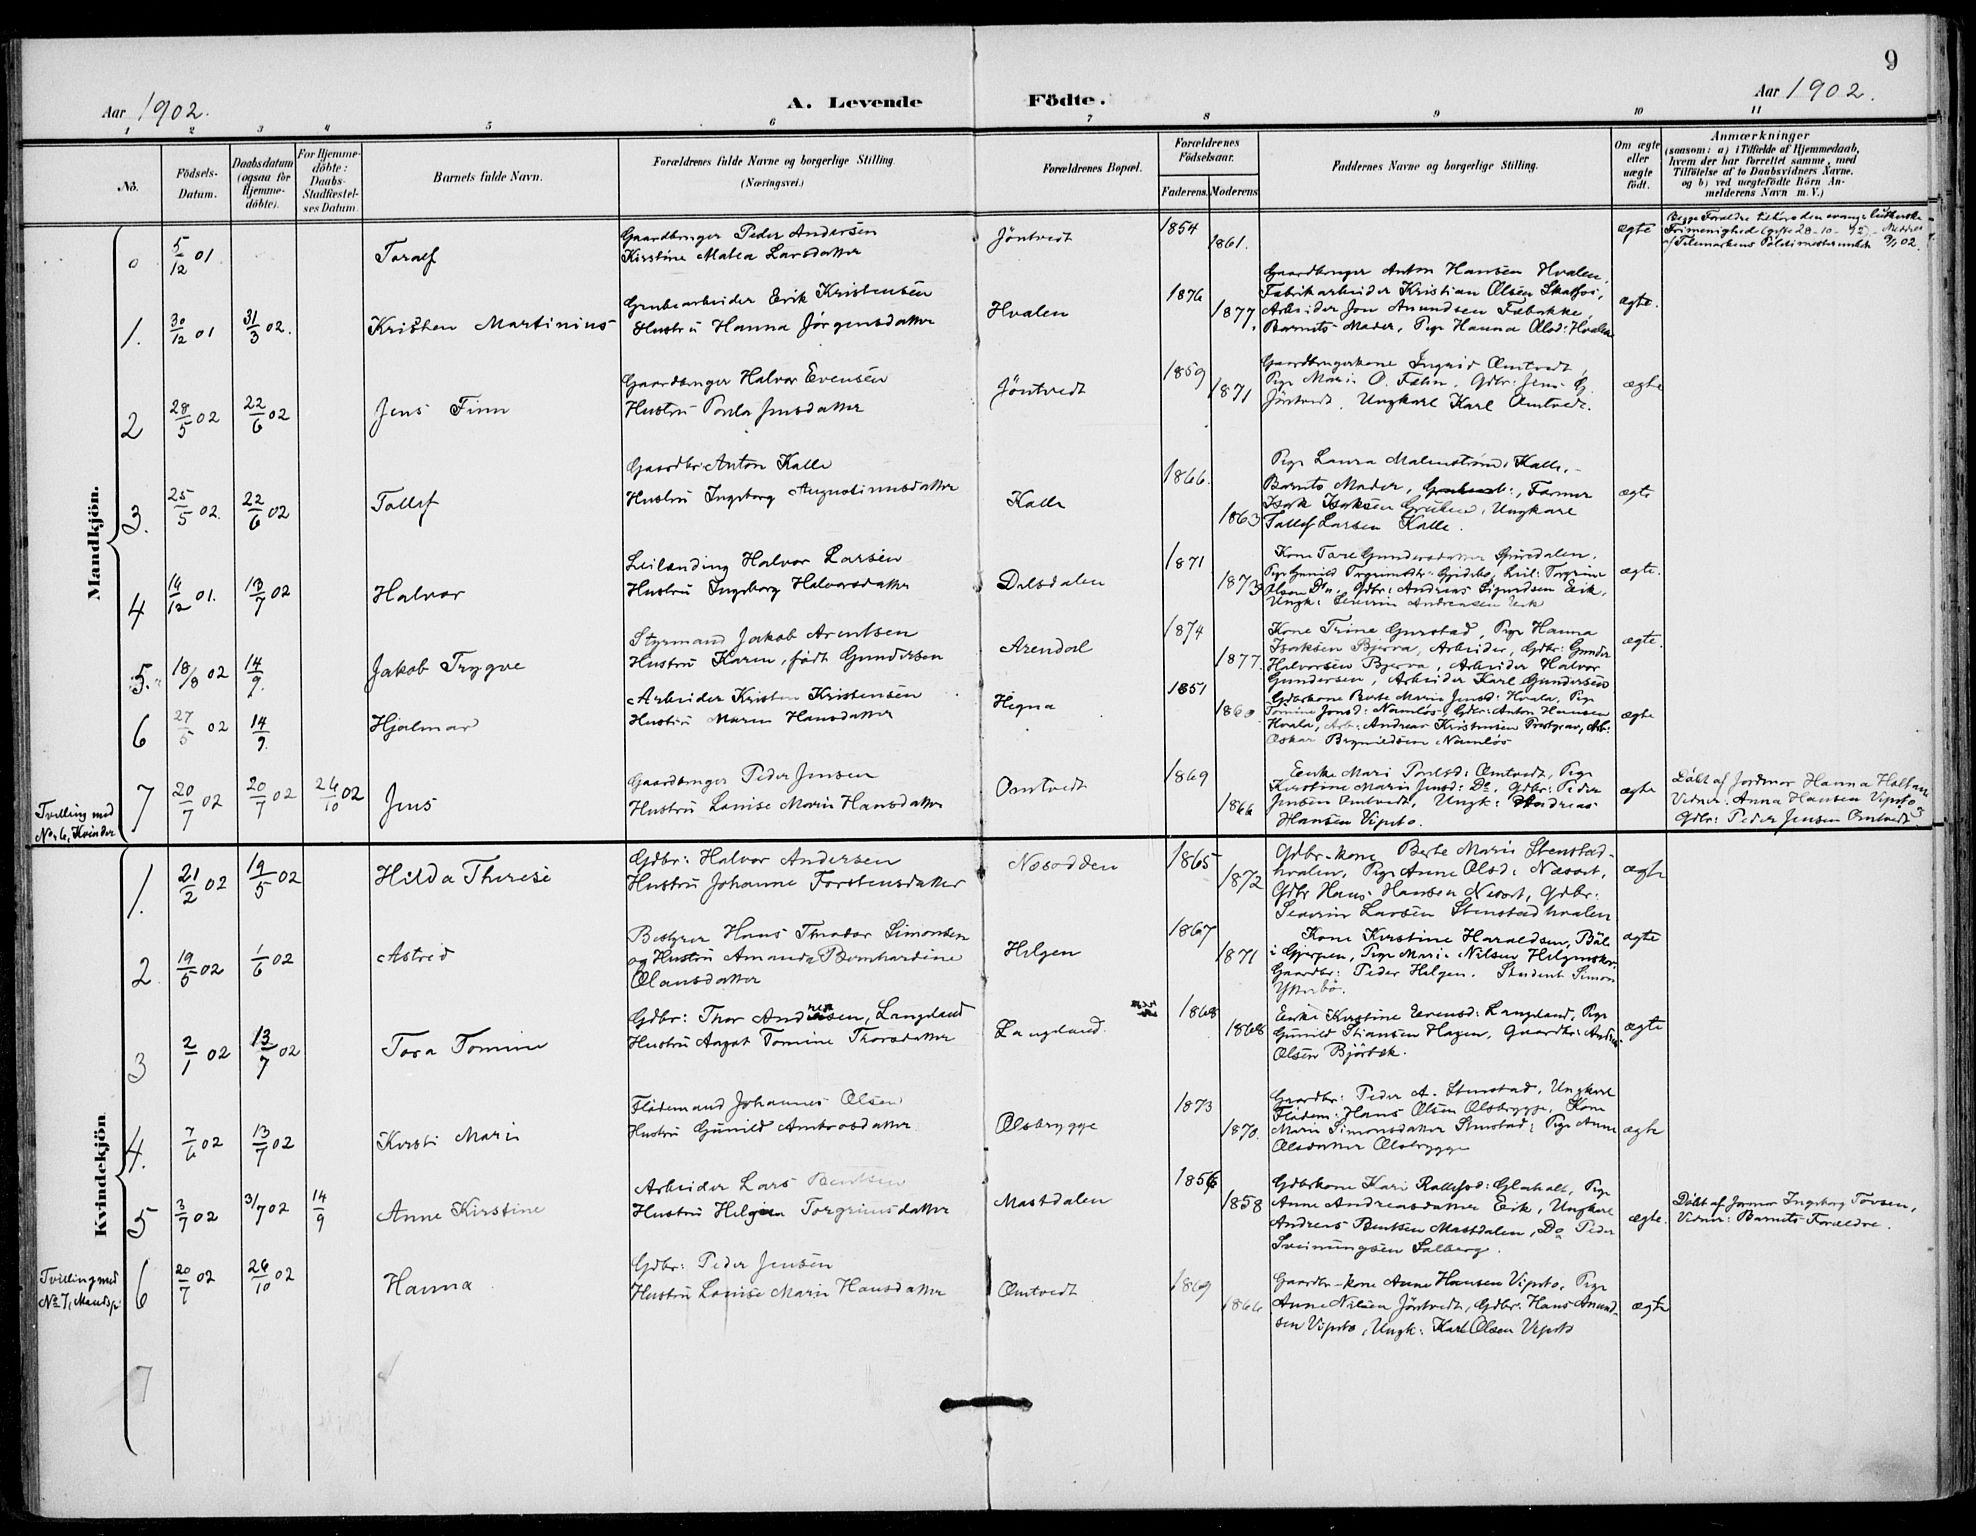 9
Aar 1902. A. Levende Födte. Aar 1902.
1 2 3 4 5 6 7 8 9 10 11
No.
Födsels-Datum.
Daabsdatum (ogsaa for Hjemme-döbte).
For Hjemme-döbte: Daabs-Stadfæstel-ses Datum.
Barnets fulde Navn.
Forældrenes fulde Navne og borgerlige Stilling.
(Næringsvei.)
Forældrenes Bopæl.
Forældrenes Födselsaar.
Faderens. Moderens
Faddernes Navne og borgerlige Stilling.
Om ægte eller uægte födt.
Anmærkninger
(saasom: a) i Tilfælde af Hjemmedaab,
hvem der har forrettet samme, med
Tilföielse af to Daabsvidners Navne,
og b) ved uægtefödte Börn An-
melderens Navn m. V.)
Mandkjön.
0 5/12 01 Toralf
Gaardbruger Peder Andersen
Kirstine Matea Larsdatter
Jöntvedt 1854 1861. ægte
Begge Forældre tilhøre den evang. lutherske
Frimenighed
1. 30/12 01 31/3 02. Kristen Martinius
Grubearbeider Erik Kristensen
Hustru Hanna Jørgensdatter
Hvalen 1876 1877.
Gaardbruger Anton Hansen Hvalen,
Fabrikarbeider Kristian Olsen Skotfos,
Arbeider Jon Amundsen Fæbakke,
Barnets Moder, Pige Hanna Olsd: Hvalen
ægte.
2 28/5 02 22/6 02 Jens Finn
Gaardbruger Halvor Evensen
Hustru Jensdatter
Jöntvedt 1859 1871
Gaardbrugerkone Ingrid Omtvedt,
Pige Maria O. Gdbr: Jens G.
Jöntvedt. Ungkarl Karl Omtvedt.
ægte
3. 25/5 02. 22/6 02 Tollef
Gaardbr: Anton Kalle
Hustru Ingeborg Augustinusdatter
Kalle 1866. 1863
Pige Laura Malmstrøm, Kalle,
Barnets Moder, Farmer
Isak Isaksen Ungkarl
Tollef Larsen Kalle.
ægte
4 14/12 01. 13/7 02 Halvor
Leilænding Halvor Larsen
Hustru Ingeborg Halvorsdatter
Dalsdalen 1871 1873
Kone Tare Gundersdatter
Olsen Do, Gdbr: Andreas Sigurdsen Eik,
Ungk: Severin Andreasen Eik
ægte.
5. 18/8 02 14/9. Jakob Trygve
Styrmand Jakob Arentsen
Hustru Karen, født Gundersen
Arendal 1874 1877.
Kone Trine Gurstad, Pige Hanna
Isaksen Bjerva, Arbeider, Gdbr: Gunder
Halvorsen Bjerva, Arbeider Halvor
Gundersen, Arbeider Karl Gundersen
ægte.
6 27/5 02 14/9. Hjalmar
Arbeider Kristen Kristensen
Hustru Maren Hansdatter
Hegna 1851 1860.
Gdbrkone Berte Marie Jensd: Hvala, Pige
Tomine Jonsd: Namløs, Gdbr: Anton Hansen
Hvala, Arb: Andreas Kristensen Arb:
Oskar Brynildsen Namløs
ægte
Tvilling med
No 6, Kvinder
7 20/7 02 20/7 02 26/10 02 Jens
Gaardbruger Peder Jensen
Hustru Lovise Marie Hansdatter
Omtvedt 1869 1866
Enke Mari Omtvedt, Pige
Kirstine Marie Jensd: Do. Gdbr: Peder
Jensen Omtvedt, Ungk: Andreas
Hansen Vipeto.
ægte
Døbt af Jordmor Hanna
Vidner: Anna Hansen Vipeto
Gdbr: Peder Jensen Omtvedt
Kvindekjön
1. 21/2 02 19/5 02 Hilda Therese
Gdbr: Halvor Andersen
Hustru Johanne Torstensdatter
Nesodden 1865 1872
Gdbr-kone Berte Marie Stenstad-
hvalen, Pige Anne Olsd: Næsset,
Gdbr Hans Hansen Gdbr:
Severin Larsen Stenstadhvalen
ægte
2 19/5 02 1/6 02 Astrid
Bestyrer Hans Theodor Simonsen
og Hustru Amanda Bernhardine
Olausdatter
Helgen 1867 1871
Kone Kirstine Haraldsen, Böle
i Gjerpen, Pige Maria Nilsen
Gaardbr: Peder Helgen. Student Simon
Ytterbö.
ægte
3 2/1 02 13/7 02 Tora Tomine
Gdbr: Thor Andersen, Langeland
Hustru Aagot Tomine Thorsdatter
Langeland. 1868 1868
Enke Kirstine Evensd: Langeland, Pige
Gunild Stiansen Hagen, Gaardbr:
Olsen
ægte
4. 7/6 02 13/7 02 Kirsti Marie
Flödemand Johannes Olsen
Hustru Gunild Ambrosdatter
Olsbrygge 1873 1870.
Gaardbr: Peder A. Stenstad, Ungkarl
Flödem: Hans Olsen Olsbrygge, Kone
Marie Simonsdatter Stenstad: Pige Anne
Olsdatter Olsbrygge
ægte
5 3/7 02 3/7 02 14/9 Anne Kirstine
Arbeider Lars Bentsen
Hustru Helgea Torgrimsdatter
Mastdalen 1856 1858
Gdbrkone Kari Pige
Anne Andreasdatter Eik, Ungkarl
Andreas Bentsen Mastdalen, Do Peder
Sveinungsen Solberg.
ægte.
Döbt af Jormor Ingeborg Torsen,
Vidner: Barnets Forældre.
Tvilling med
No 7, Mandkj:
6 20/7 02 26/10 02 Hanna
Gdbr: Peder Jensen
Hustru Lovise Marie Hansdatter
Omtvedt 1869 1866
Gaardbr-kone Anne Hansen Vipeto, Pige
Anne Nilsen Jöntvedt, Gdbr: Hans Amund-
sen Vipeto, Ungk: Karl Olsen Vipeto
ægte
7